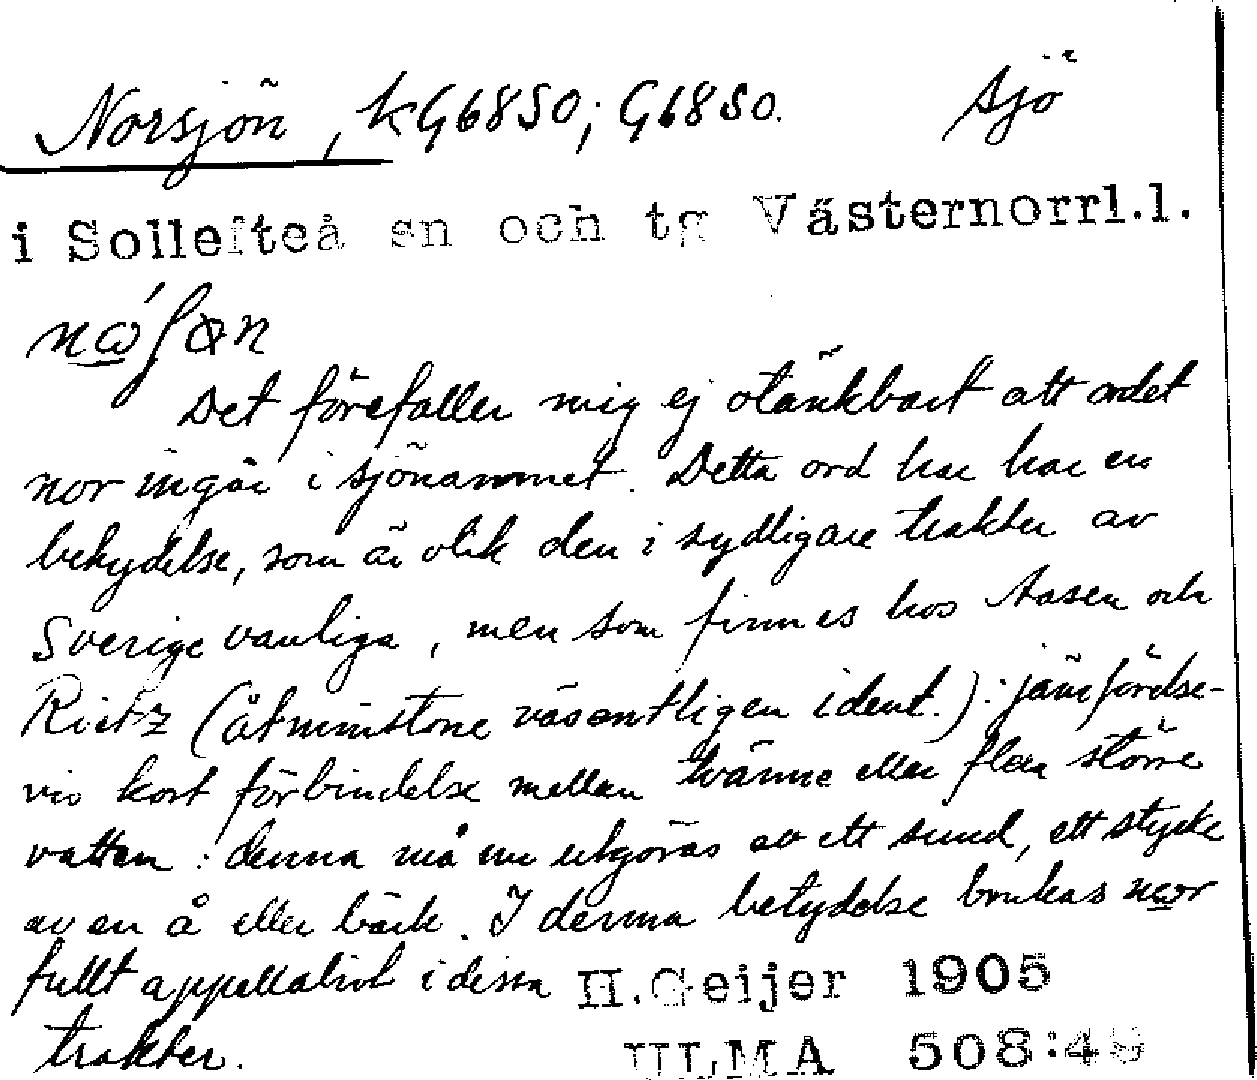 Norsjön, kG6850; G6850. sjö
i Sollefteå sn och tg Västernorrl.l.
Det förefaller mig ej otänkbart att ordet
nor ingår i sjönamnet. Detta ord har här en
betydelse, som är olik den i sydligare trakter av
Sverige vanliga, men som finnes hos Aasen och
Rietz (åtminstone väsentligen ident.): jämförelse-
vis kort förbindelse mellan tvänne eller flera större
vatten: denna må nu utgöras av ett sund, ett stycke
av en å eller bäck. I denna betydelse brukas nωr
fullt appellativt i dessa H.Geijer 1905
trakter. ULMA 508:49